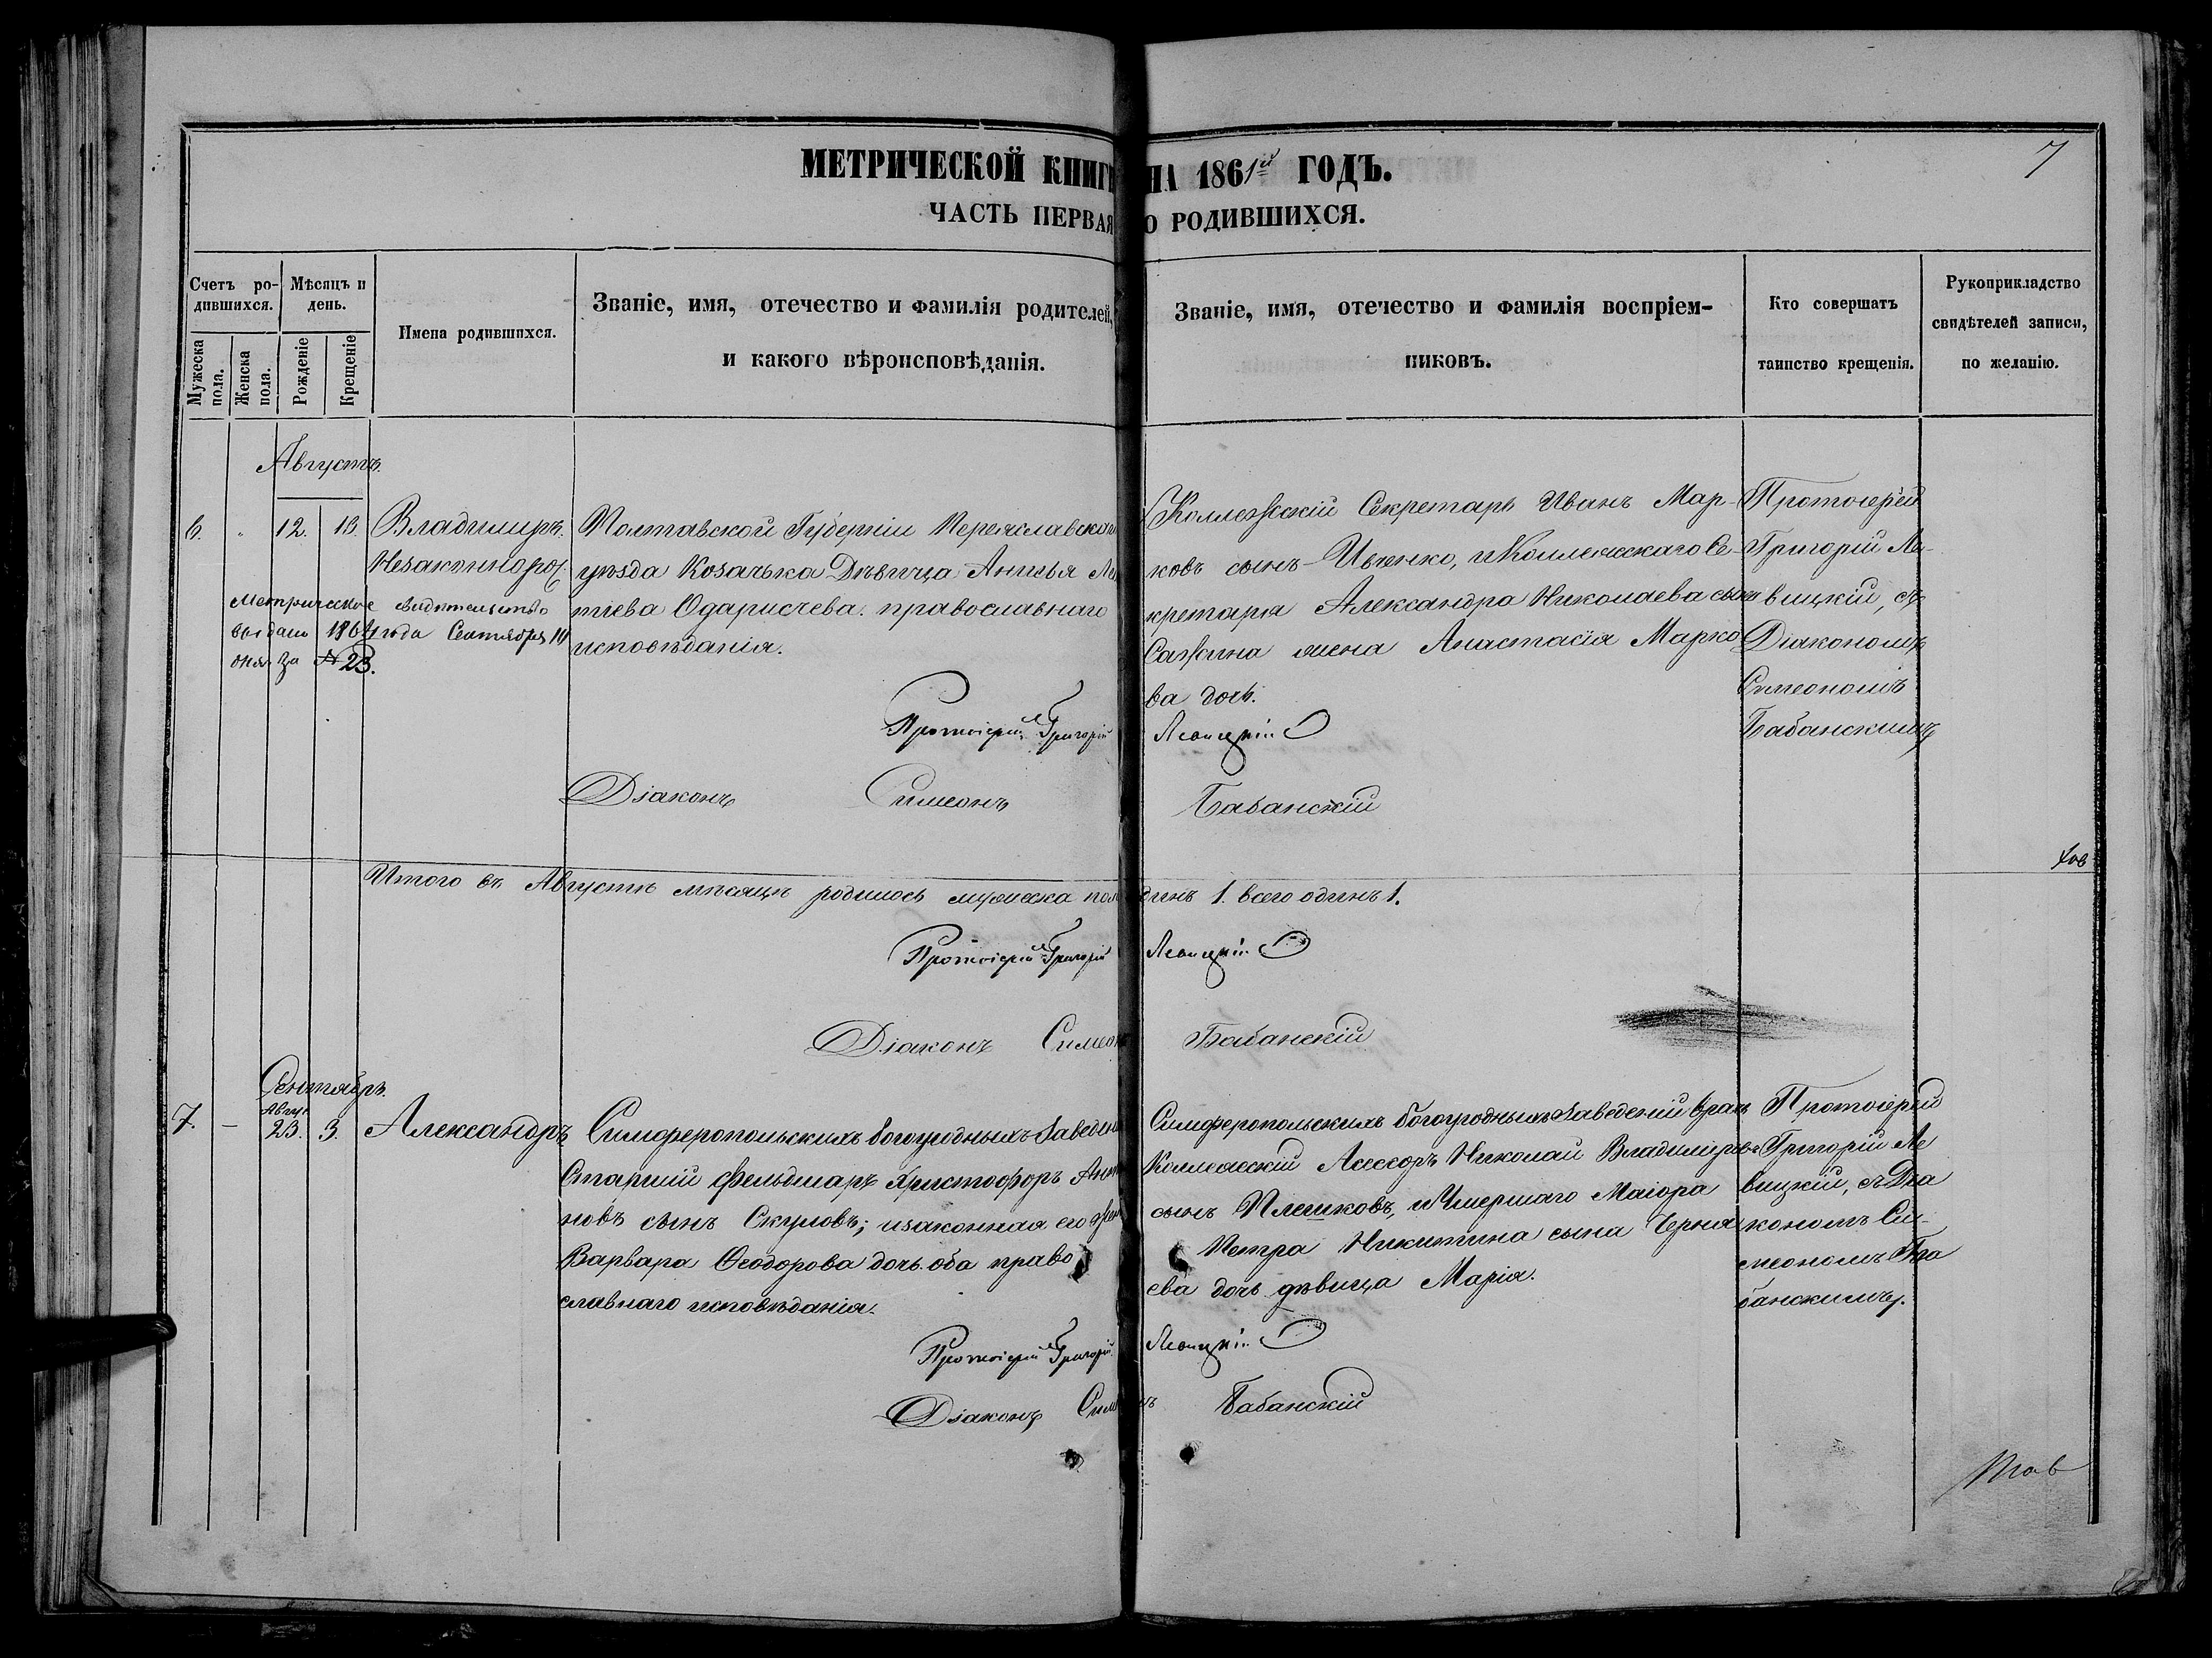 МЕТРИЧЕСКОЙ КНИГИ НА 1861й ГОДЪ.
7
ЧАСТЬ ПЕРВАЯ О РОДИВШИХСЯ.
Счетъ родившихся.
Мужеска пола.
Женска пола.
Мѣсяцъ и день.
Рожденіе
Крещеніе
Имена родившихся.
Званіе, имя, отечество и фамилія родителей,
и какого вѣроисповѣданія.
Званіе, имя, отечество и фамилія воспріем-
никовъ.
Кто совершатъ
таинство крещенія.
Рукоприкладство
свидѣтелей записи,
по желанію.
Августъ.
6. 12. 13.
Владимиръ.
Незаконнорож.
Метрическое свидѣтельство
выдано 1864 года Сентября 14
дня за № 23.
Полтавской Губерніи Переяславскаго
уѣзда Козачька Дѣвица Анисья
тіева Одарисчева. православнаго
исповѣданія.
Коллежскій Секретарь Иванъ Мар-
ковъ сынъ Ивченко, и Коллежскаго Се-
кретаря Александра Николаева сына
жена Анастасія Марко
ва дочь.
Протоіерей
Григорій Ле-
вицкій, съ
Діакономъ
Симеономъ
Бабанскимъ
Протоіерей Григорій Левицкій
Діаконъ Симеонъ Бабанскій
Итого въ Августѣ мѣсяцѣ родилось мужеска пола динъ 1. всего одинъ 1.
Протоіерей Григорій Левицкій
Діаконъ Симеонъ Бабанскій
Сентябрь.
Авгус
7. – 23. 3.
Александръ
Симферопольскихъ богоугодныхъ Заведен
Старшій Фельдшаръ Христофоръ Анто
новъ сынъ Скуловъ; и законная его жен
Варвара Ѳеодорова дочь. оба право
славнаго исповѣданія.
Симферопольскихъ богоугодныхъ Заведеній врачь
Коллежскій Асессоръ Николай Владиміровъ
сынъ Плешковъ, и Умершаго Маіора
Петра Никитина сына Черня
ева дочь дѣвица Марія.
Протоіерей
Григорій Ле
вицкій, съ Діа
кономъ Си-
меономъ Ба
банскимъ.
Протоіерей Григорій Левицкій
Діаконъ Симеонъ Бабанскій